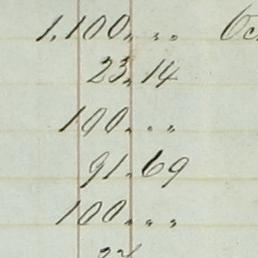 1,100 〃 〃
23.14
100 〃 〃
91.69
100 〃 〃